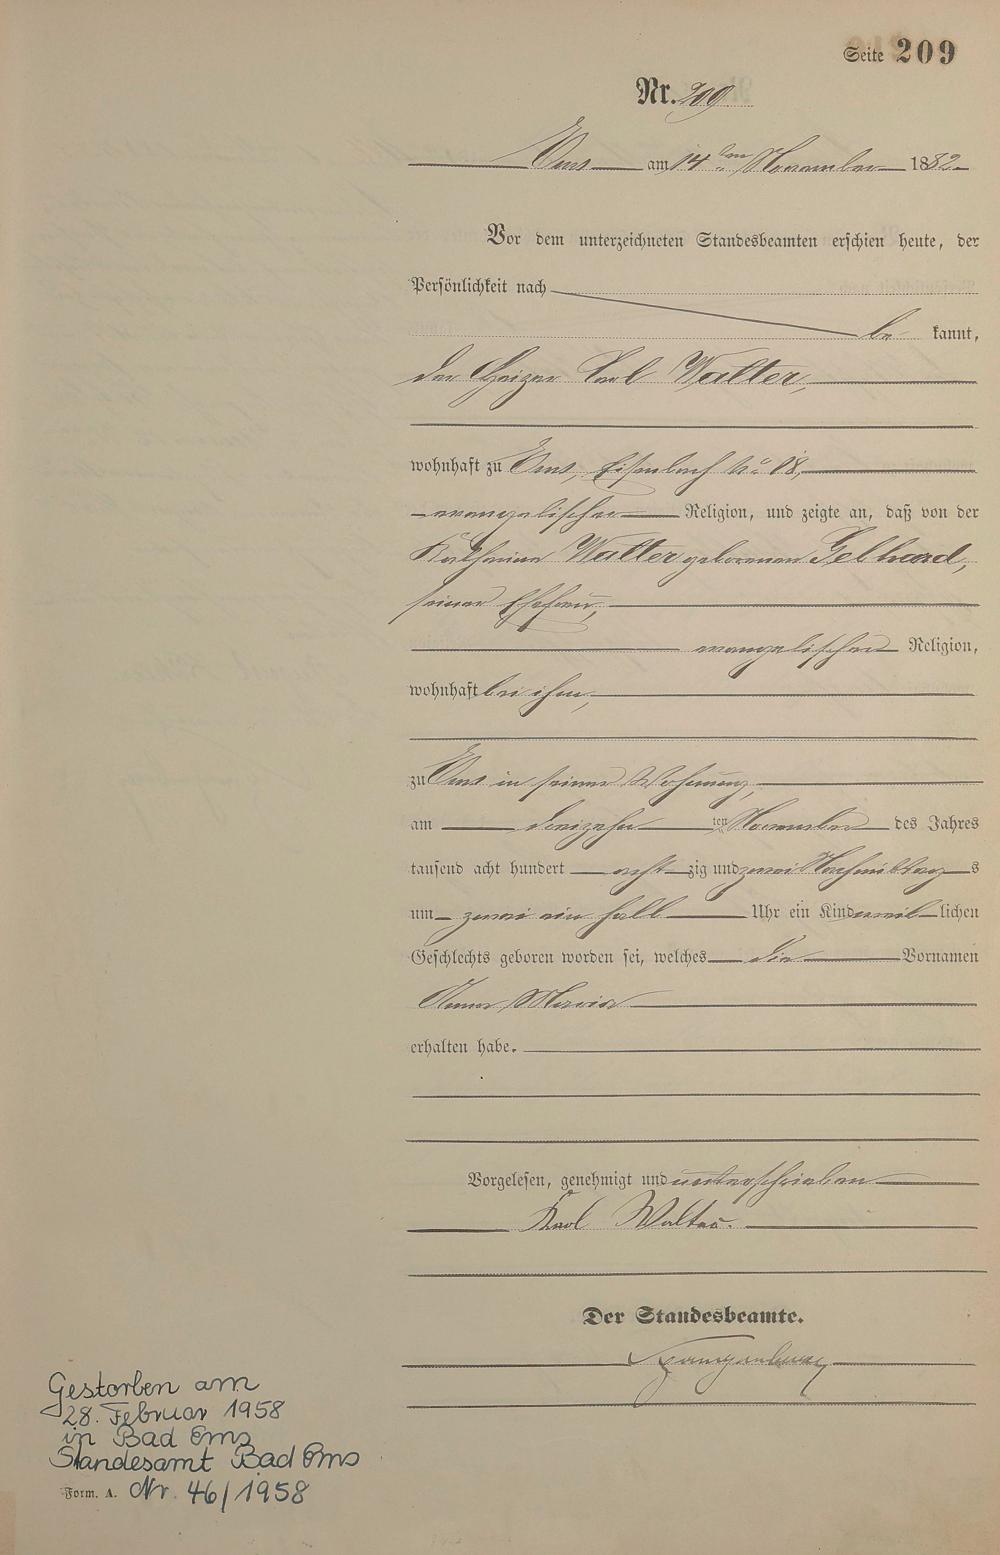 Seite 209
Nr. 209
Ems am 14ten November 1882
Vor dem unterzeichneten Standesbeamten erschien heute, der
Persönlichkeit nach
be kannt,
der Heizer Karl Walter,
wohnhaft zu Ems, Eisenbach No 18,
evangelischer Religion, und zeigte an, daß von der
Katharina Walter geborenen Gebhard,
seiner Ehefrau,
evangelischer Religion,
wohnhaft bei ihm,
zu Ems in seiner Wohnung,
am dreizehn ten November des Jahres
tausend acht hundert acht zig und zwei Nachmittag s
um zwei ein halb Uhr ein Kind weib lichen
Geschlechts geboren worden sei, welches die Vornamen
Anna Maria
erhalten habe.
Vorgelesen, genehmigt und unterschrieben
Karl Walter.
Der Standesbeamte.
Gestorben am
28. Februar 1958
in Bad Ems
Standesamt Bad Ems
Form. A. Nr. 46/1958